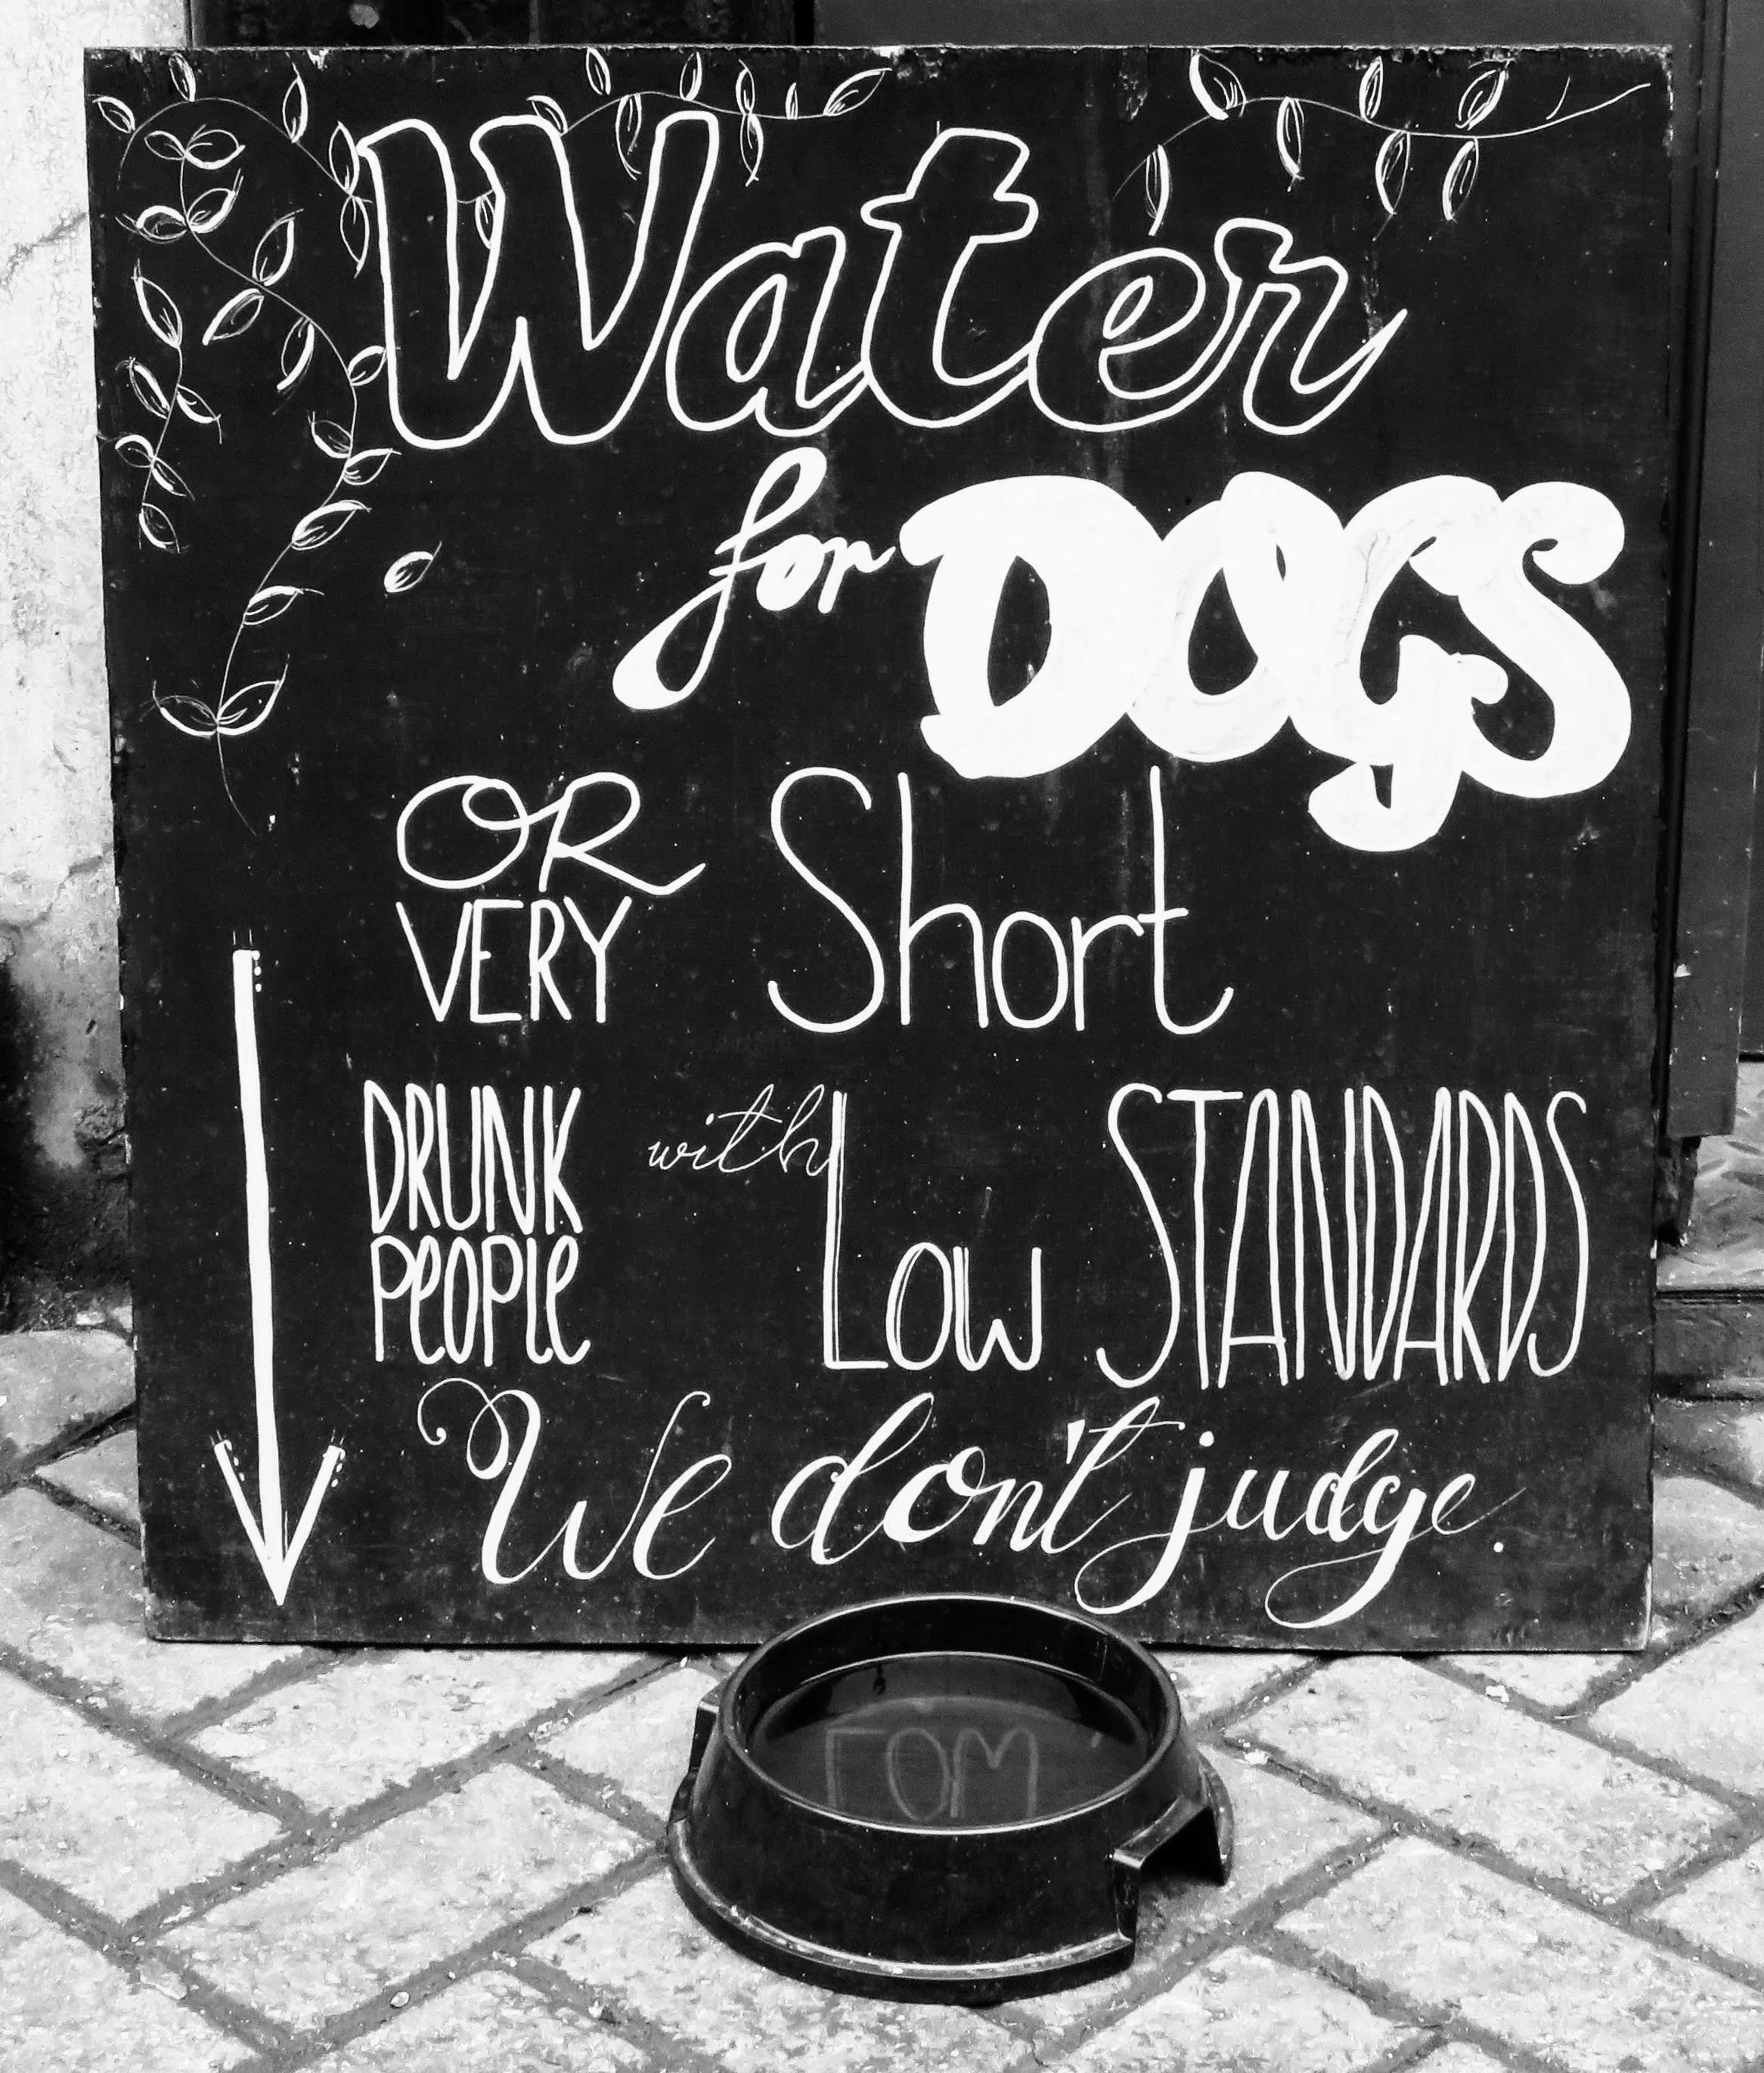 Water
for DOGS
OR
VERY Short
DRUNK
PEOPlE with Low STANDARDS
We don't judge.